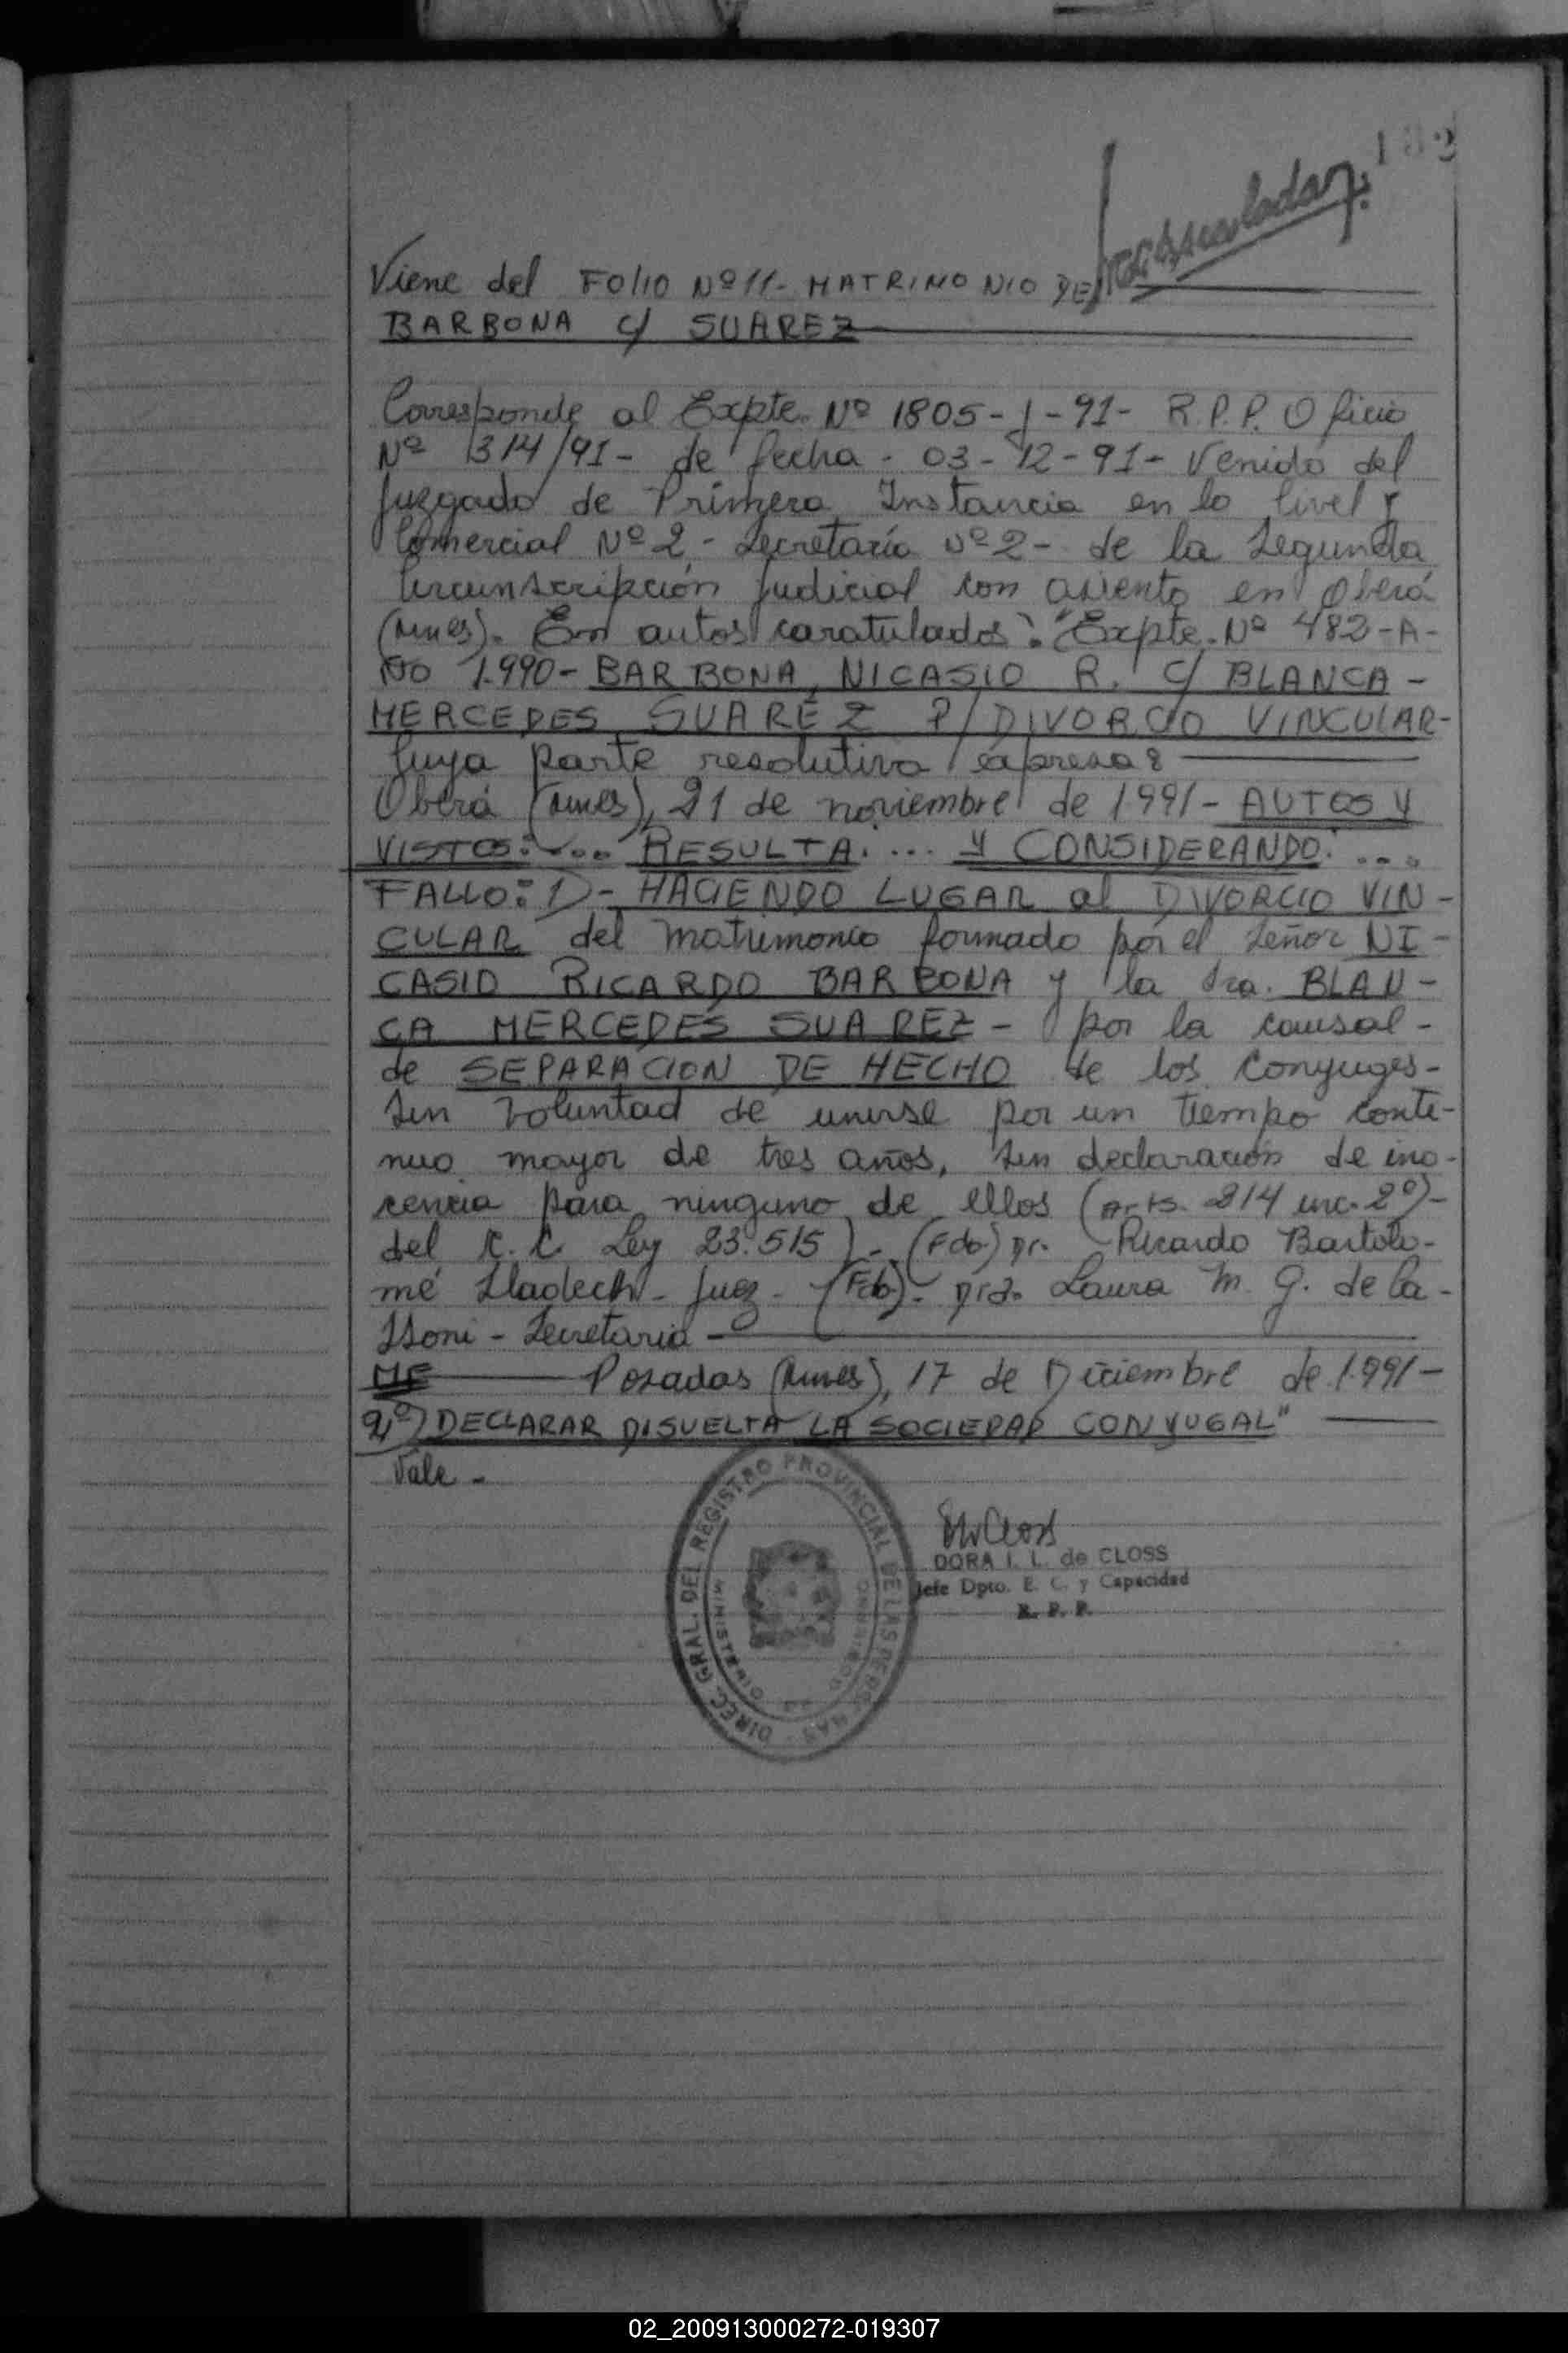 182
Viene del FOLIO Nº 11- MATRIMONIO DE
BARBONA C/ SUAREZ
Corresponde al Expte. Nº 1805-J-91- R.P.P. Oficio
Nº 1314/91- de fecha - 03-12-91- Venido del
Juzgado de Primera Instancia en lo Civel y
Comercial Nº 2 - Secretaría Nº 2- de la Segunda
Circunscripción Judicial con asiento en Oberá
(Mnes). En autos caratulados: "Expte. Nº 482-A-
ÑO 1.990- BARBONA, NICASIO R. C/ BLANCA -
MERCEDES SUAREZ P/ DIVORCIO VINCULAR-
Cuya parte resolutiva expresa:
Oberá (Mnes), 21 de noviembre de 1991- AUTOS Y
VISTOS: ... RESULTA: ... Y CONSIDERANDO: ...
FALLO: 1)- HACIENDO LUGAR al DIVORCIO VIN-
CULAR del matrimonio formado por el Señor NI-
CASIO RICARDO BARBONA y la Sra. BLAN-
CA MERCEDES SUAREZ - por la causal -
de SEPARACION DE HECHO de los Conyuges-
Sin voluntad de unirse por un tiempo conti-
nuo mayor de tres años, Sin declaración de ino-
cencia para ninguno de ellos (Arts. 214 inc. 2º)-
del C.C. Ley 23.515)- (Fdo) Dr. Ricardo Bartolo-
mé - Juez - (Fdo)- Dra. Laura M. G. de Ca-
ssoni - Secretaria -
ME Posadas (Mnes), 17 de Diciembre de 1.991-
2º) DECLARAR DISUELTA LA SOCIEDAD CONYUGAL"
Vale -
DIREC. GRAL. DEL REGISTRO PROVINCIAL DE LAS PERSONAS
MINISTERIO DE GOBIERNO
DORA I. L. de CLOSS
Jefe Dpto. E. C. y Capacidad
R. P. P.
02_200913000272-019307